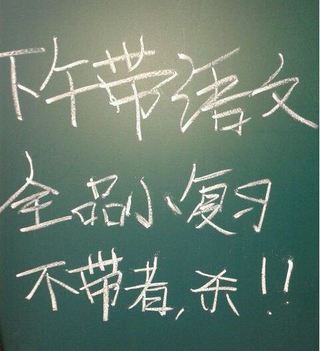 下午带语文
全品小复习
不带者,杀!!